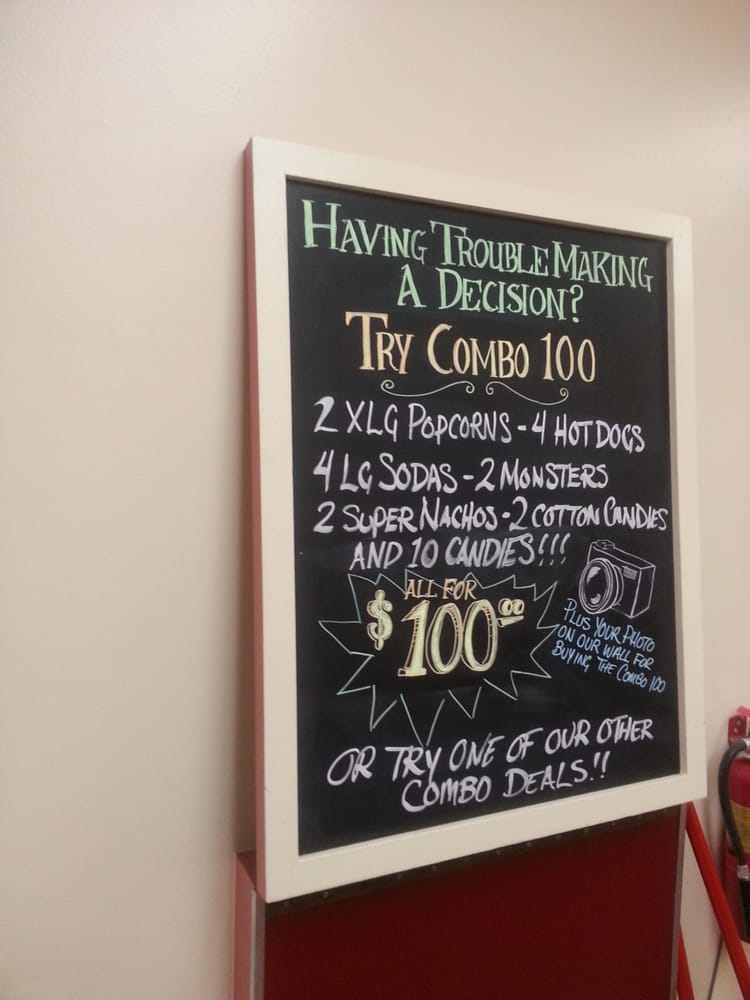 HAVING TROUBLE MAKING
A DECISION?
TRY COMBO 100
2 XLG POPCORNS - 4 HOT DOGS
4 LG SODAS - 2 MONSTERS
2 SUPER NACHOS - 2 COTTON CANDIES
AND 10 CANDIES!!!
ALL FOR
$100.00
PLUS YOUR PHOTO
ON OUR WALL FOR
BUYING THE COMBO 100
OR TRY ONE OF OUR OTHER
COMBO DEALS!!